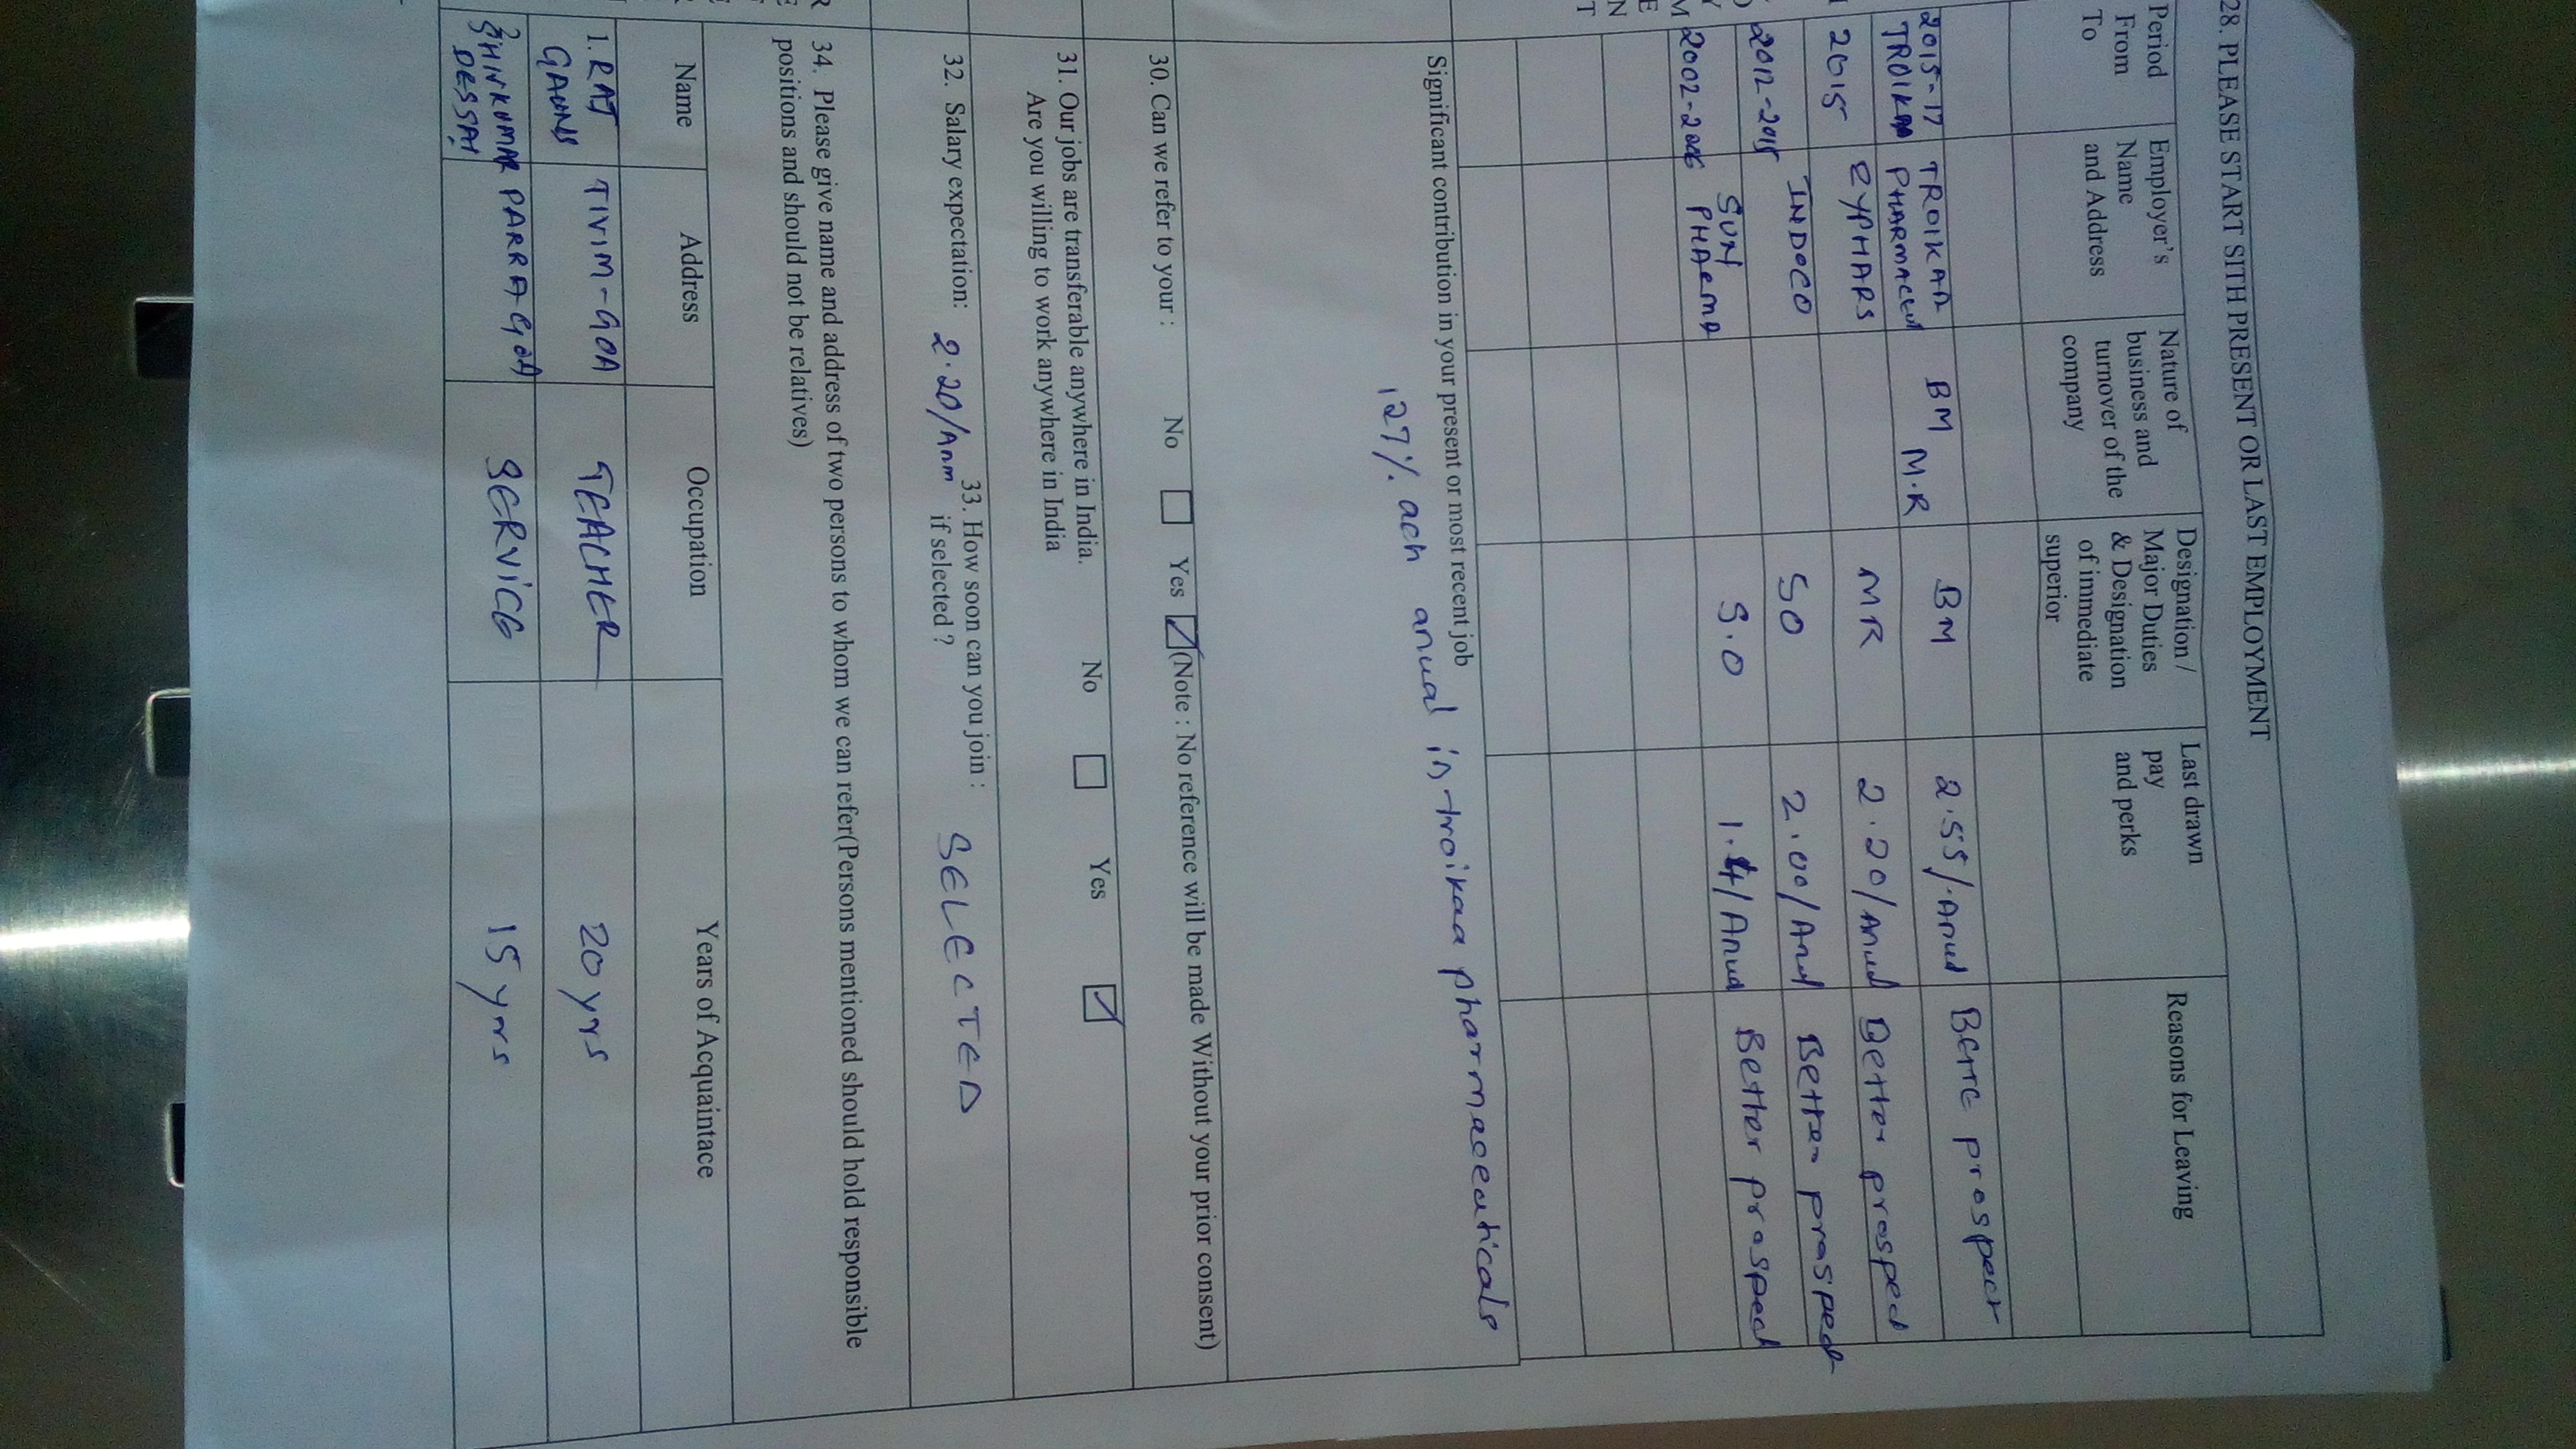 28. PLEASE START SITH PRESENT OR LAST EMPLOYMENT
Period From To
Employer's Name and Address
Nature of business and turnover of the company
Designation / Major Duties & Designation of immediate superior
Last drawn pay and perks
Reasons for Leaving
2015-17 TROIKAA BM BM 2.55/.Anual Bette prospect
TROIKAA PHARMACEU M.R
2015 ZYPHARS MR 2.20/Anual Better prospect
2012-2015 INDOCO SO 2.00/Anul Better prospect
2002-2006 SUN PHARMA S.O 1.4/Anua Better prospect
Significant contribution in your present or most recent job
127% ach anual in troikaa pharmaceuticals
30. Can we refer to your : No Yes (Note : No reference will be made Without your prior consent)
31. Our jobs are transferable anywhere in India.
Are you willing to work anywhere in India No Yes
32. Salary expectation: 2.20/Anm
33. How soon can you join :
if selected ? SELECTED
34. Please give name and address of two persons to whom we can refer(Persons mentioned should hold responsible
positions and should not be relatives)
Name Address Occupation Years of Acquaintace
1. RAJ TIVIM-GOA TEACHER 20 yrs
GAUNS
SHINKUMAR PARRA-GOA SERVICE 15 yrs
DESSAI